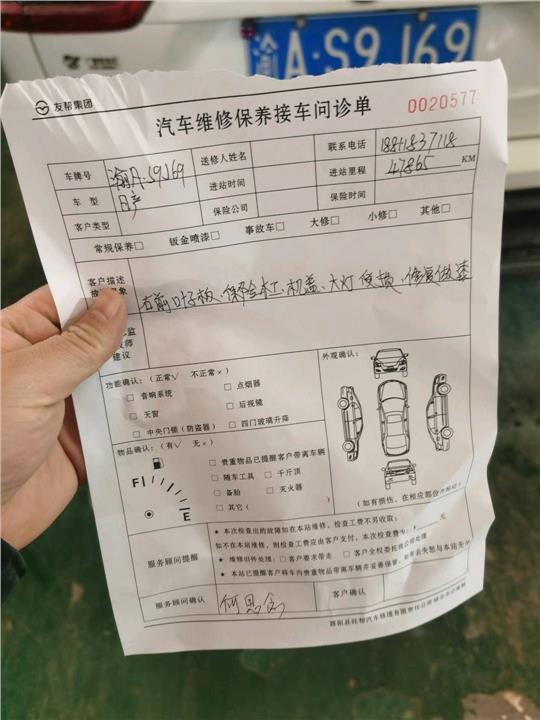 渝A·S9J69
友帮集团
汽车维修保养接车问诊单
0020577
车牌号 渝A·S9J69 送修人姓名 联系电话 18811837118
车型 日产 进站时间 进站里程 47865 KM
客户类型 保险公司 保险时间
常规保养□ 钣金喷漆□ 事故车□ 大修□ 小修□ 其他□
客户描述
右前叶子板、保险杠、机盖、大灯受损、修复做漆
建议
功能确认:(正常√ 不正常×) 外观确认:
□ 音响系统 □ 点烟器
□ 天窗 □ 后视镜
□ 中央门锁(防盗器) □ 四门玻璃升降
物品确认:(有√ 无×)
□ 贵重物品已提醒客户带离车辆
□ 随车工具 □ 千斤顶
□ 备胎 □ 灭火器
□ 其它( )
F E
(如有损伤,在相应部位
服务顾问提醒
★ 本次检查出的故障如在本站维修,检查工费不另收取;
如不在本站维修,则检查工费应由客户支付,本次检查费为:¥ 元
★ 维修旧件处理:□ 客户要求带走 □ 客户全权委托我公司处理
★ 本站已提醒客户将车内贵重物品带离车辆并妥善保管,如有丢失恕与本站无
服务顾问确认 客户确认